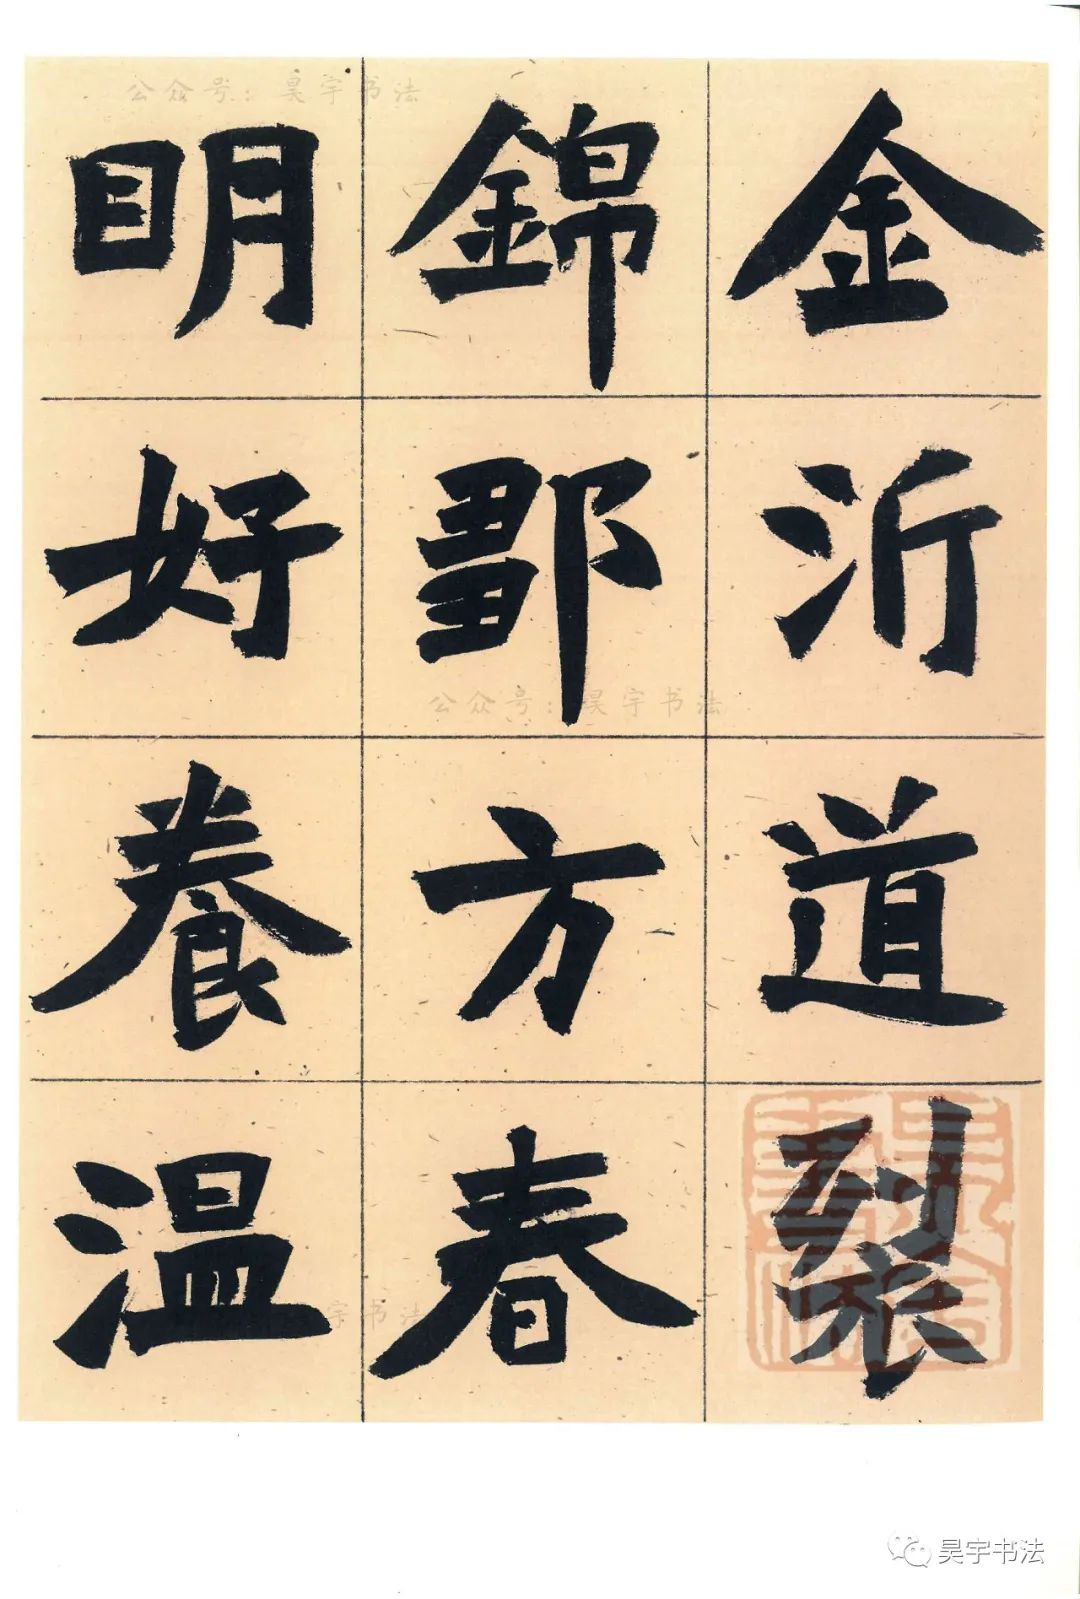 金沂道裂
錦鄒方春
明好養温
公众号：昊宇书法
公众号：昊宇书法
宇书法
昊宇书法